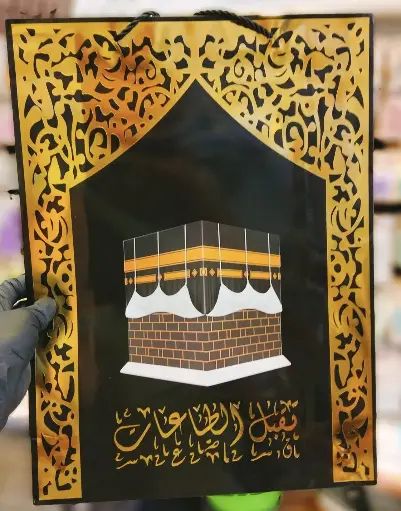 تقبل الطاعات